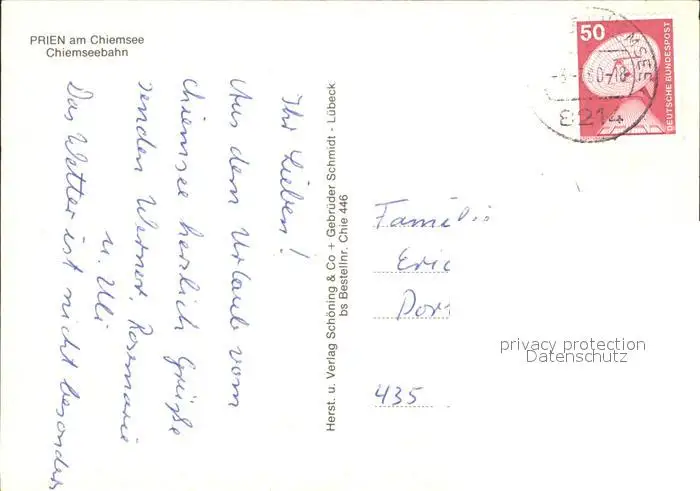 PRIEN am Chiemsee
Chiemseebahn
Ihr Lieben!
Aus dem Urlaub vom
Chiemsee herzlich Grüße
senden Werner, Rosemarie
u. Uli
Das Wetter ist nicht besonders
Herst. u. Verlag Schöning & Co + Gebrüder Schmidt - Lübeck
bs Bestellnr. Chie 446
50
DEUTSCHE BUNDESPOST
8214
Familie
Eric
Dor
435
privacy protection
Datenschutz